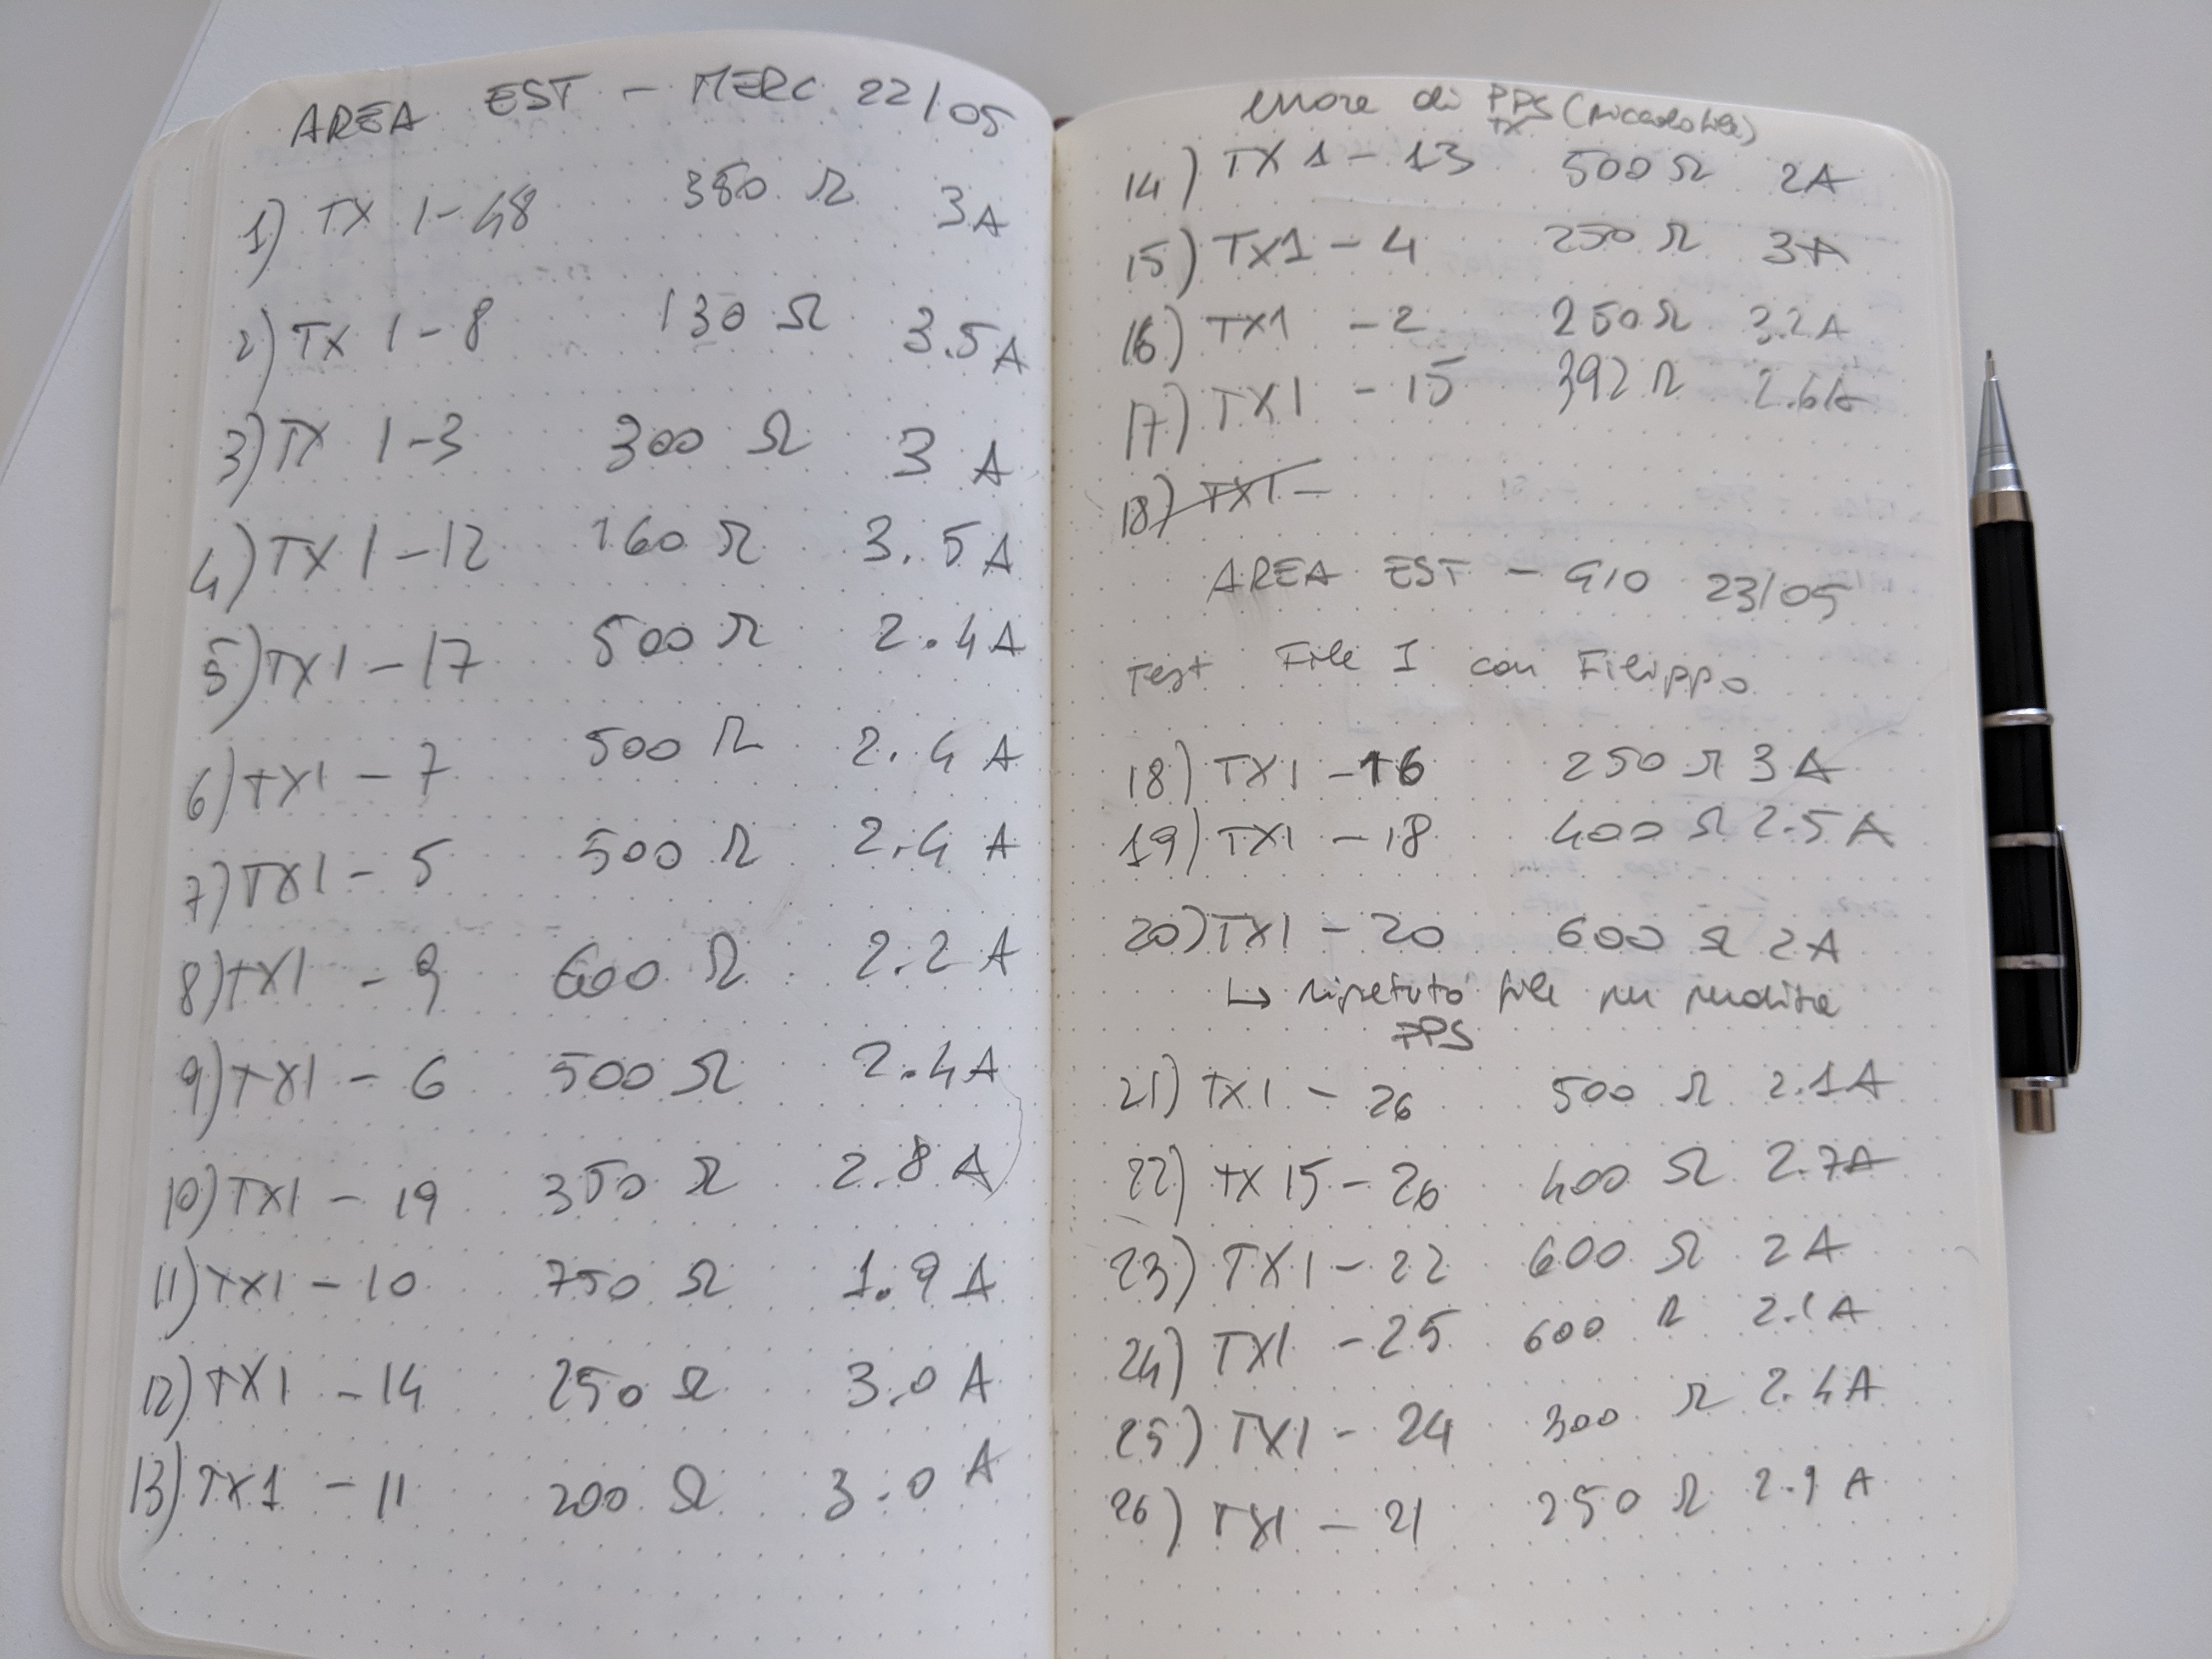 AREA EST - MERC 22/05
1) TX 1-48 380 Ω 3A
2) TX 1-8 130 Ω 3.5A
3) TX 1-3 300 Ω 3 A
4) TX 1-12 160 Ω 3.5A
5) TX1-17 500 Ω 2.4A
6) TX1 - 7 500 Ω 2.4 A
7) TX1 - 5 500 Ω 2.4 A
8) TX1 - 9 600 Ω 2.2 A
9) TX1 - 6 500 Ω 2.4A
10) TX1 - 19 350 Ω 2.8 A
11) TX1 - 10 750 Ω 1.9 A
12) TX1 - 14 250 Ω 3.0 A
13) TX1 - 11 200 Ω 3.0 A
errore di PPS (piccolo file)
TX
14) TX 1 - 13 500 Ω 2A
15) TX1 - 4 250 Ω 3A
16) TX1 - 2 250 Ω 3.2A
17) TX1 - 15 392 Ω 2.6A
18) TX1 -
AREA EST - GIO 23/05
Test File I con Filippo
18) TX1 - 16 250 Ω 3 A
19) TX1 - 18 400 Ω 2.5 A
20) TX1 - 20 600 Ω 2A
↳ ripetuto file per perdita
PPS
21) TX1 - 26 500 Ω 2.1A
22) TX 15 - 26 400 Ω 2.7A
23) TX1 - 22 600 Ω 2A
24) TX1 - 25 600 Ω 2.1A
25) TX1 - 24 300 Ω 2.4A
26) TX1 - 21 250 Ω 2.9 A